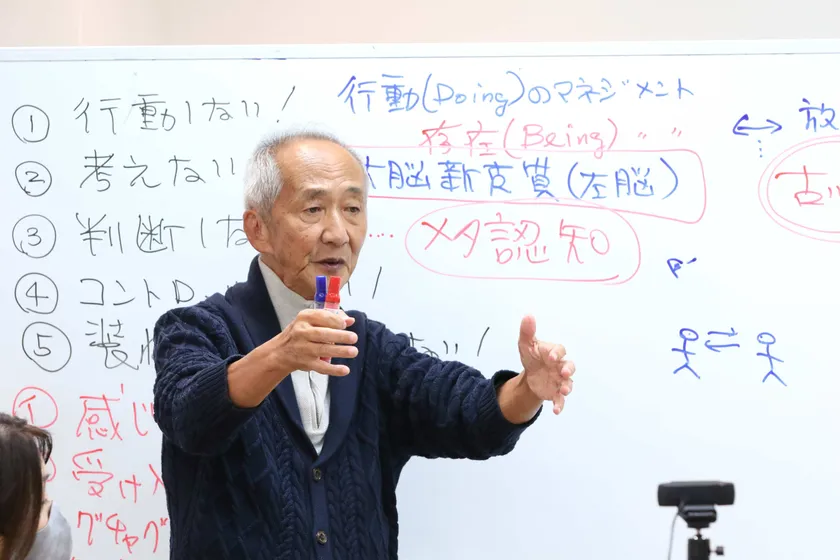 ① 行動しない!
② 考えない
③ 判断しな
④ コントロ
⑤ 装
① 感じ
受け入
グチャグ
行動(Doing)のマネジメント
存在(Being) 〃 〃
大脳新皮質(左脳)
メタ認知
放
古い